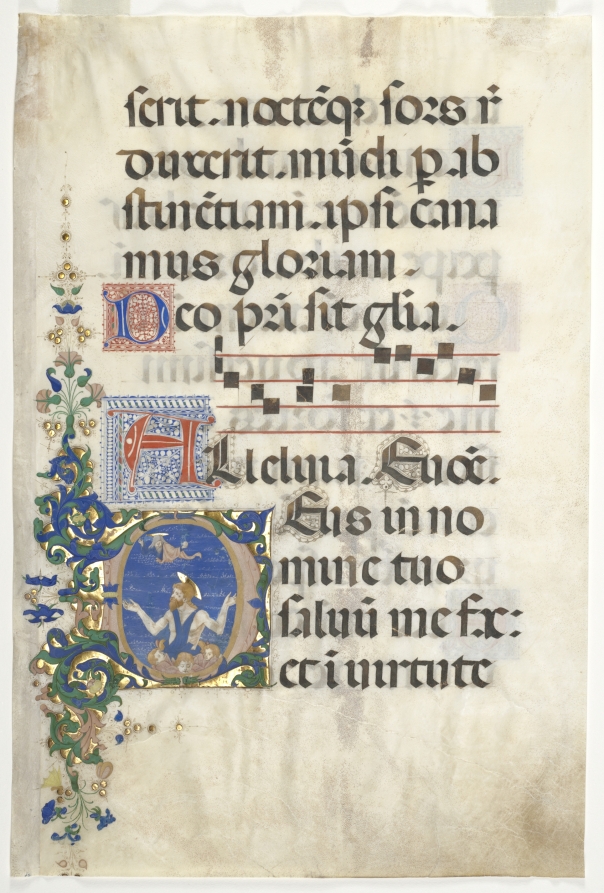 scerit. noctēqꝫ sors r̄
duxerit. mūdi ꝑ ab
stinētiam. ipsi cana
mus gloriam.
Deo pr̄i sit gl̄ia.
Alleluia. Euoē.
Deus in no
mine tuo
saluū me fac:
et ī uirtute